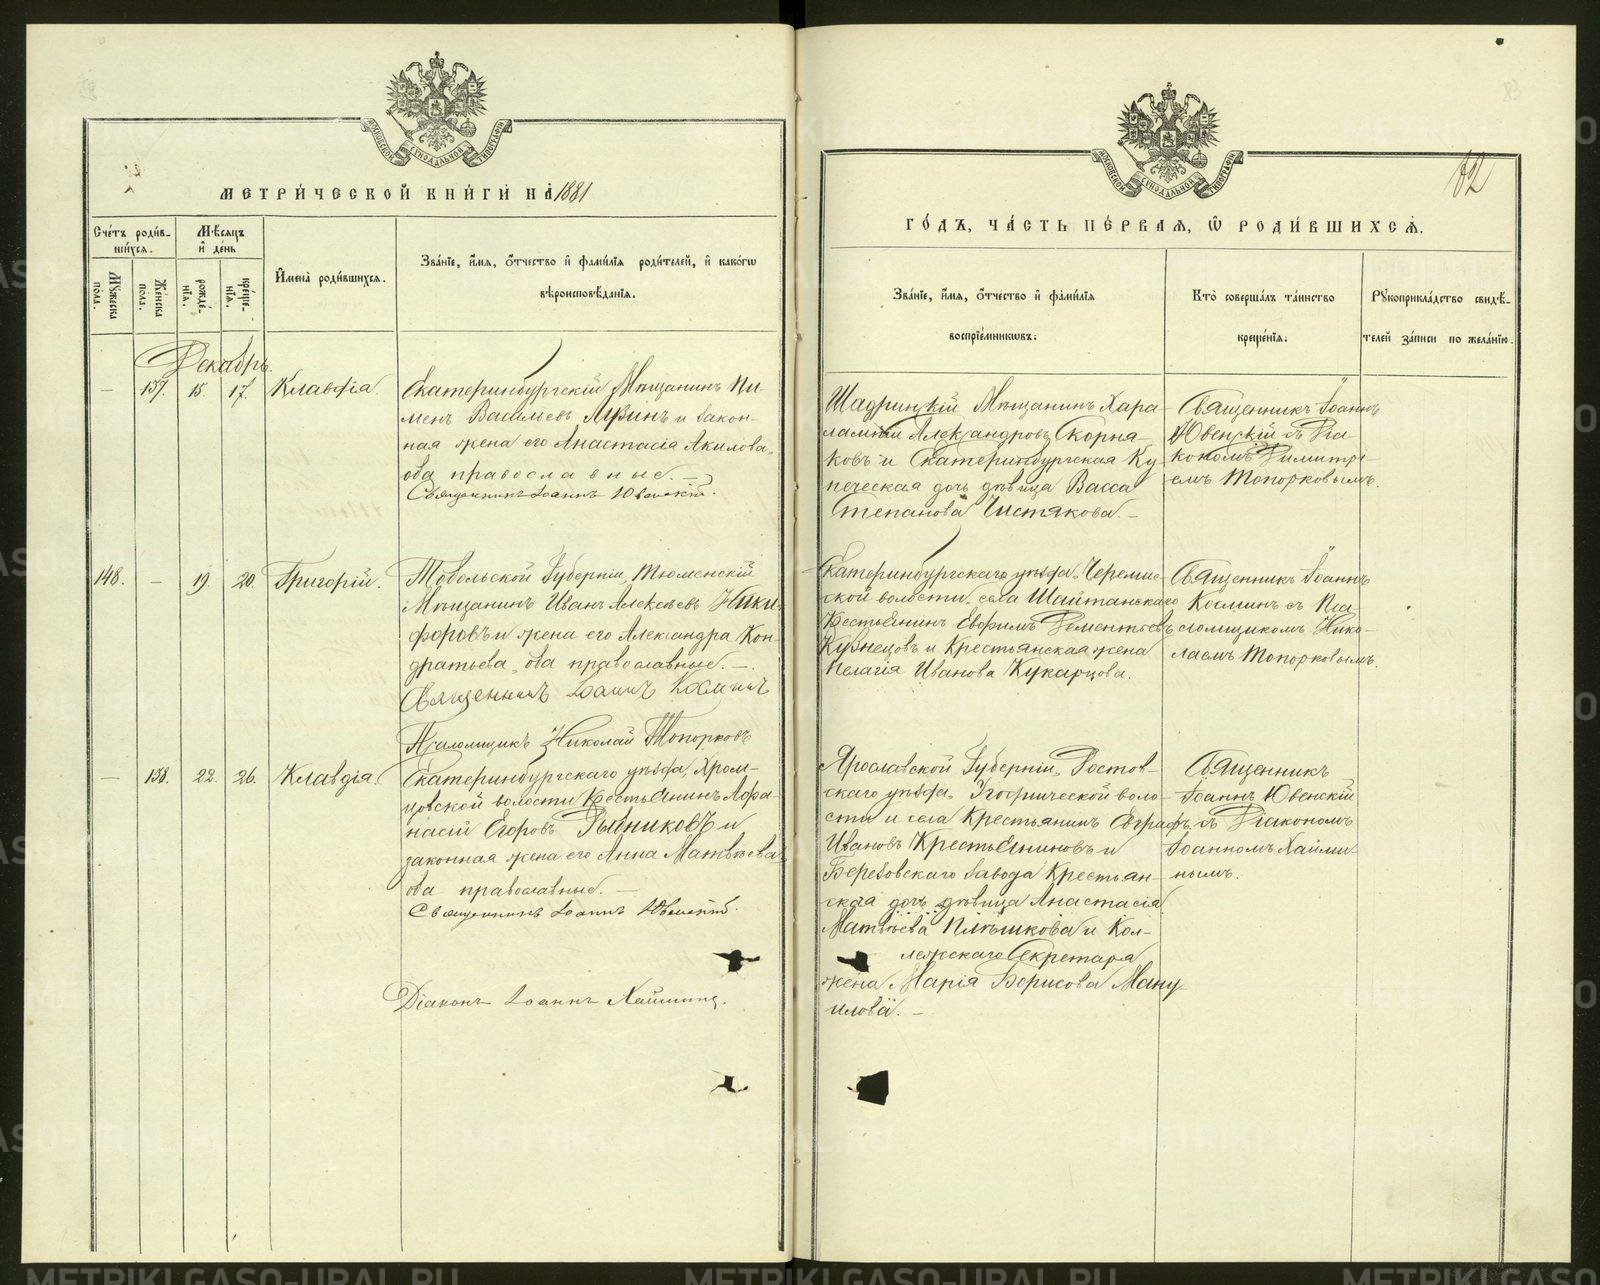 МЕТРИЧЕСКОЙ КНИГИ НА 1881
Счетъ родив-
шихся.
Мѣсяцъ
и день
Мужеска
пола.
Женска
пола.
рожде-
нія.
креще-
нія.
Имена родившихся.
Званіе, имя, отчество и фамилія родителей, и какого
вѣроисповѣданія.
Декабрь.
— 157. 15 17. Клавдія.
Екатеринбургскій Мѣщанинъ Пи-
менъ Васильевъ Лузинъ и закон-
ная жена его Анастасія Акилова,
оба православные. —
Священникъ Іоаннъ Ювенскій.
148. — 19 20. Григорій.
Тобольской Губерніи, Тюменскій
Мѣщанинъ Иванъ Алексѣевъ Ники-
форовъ и жена его Александра Кон-
дратьева, оба православные. —.
Священникъ Іоаннъ Косминъ
Псаломщикъ Николай Топорковъ
— 158. 22. 26. Клавдія.
Екатеринбургскаго уѣзда, Хром-
цовской волости Крестьянинъ Афа-
насій Егоровъ Рыбниковъ и
законная жена его Анна Матвѣева
оба православные. —
Священникъ Іоаннъ Ювенскій.
Діаконъ Іоаннъ Хайминъ.
МОСКОВСКОЙ СѴНОДАЛЬНОЙ ТИПОГРАФІИ
82
ГОДЪ, ЧАСТЬ ПЕРВАЯ, Ѡ РОДИВШИХСЯ.
Званіе, имя, отчество и фамилія
воспріемниковъ:
Кто совершалъ таинство
крещенія:
Рукоприкладство свидѣ-
телей записи по желанію.
Шадринскій Мѣщанинъ Хара-
лампій Александровъ Скорня-
ковъ и Екатеринбургская Ку-
печеская дочь дѣвица Васса
Степанова Чистякова. —
Священникъ Іоаннъ
Ювенскій съ Діа-
кономъ Димитрі-
емъ Топорковымъ.
Екатеринбургскаго уѣзда, Черемис-
ской волости, села Шайтанскаго
Крестьянинъ Евфимъ Дементьевъ
Кузнецовъ и Крестьянская жена
Пелагія Иванова Кукарцова.
Священникъ Іоаннъ
Косминъ съ Пса-
ломщикомъ Нико-
лаемъ Топорковымъ.
Ярославской Губерніи, Ростов-
скаго уѣзда, Угодической воло-
сти и села Крестьянинъ Евграфъ
Ивановъ Крестьяниновъ и
Березовскаго Завода Крестьян-
ская дочь дѣвица Анастасія
Матвѣева Плѣшкова и Кол-
лежскаго Секретаря
жена Марія Борисова Ману-
илова. —
Священникъ
Іоаннъ Ювенскій
съ Діакономъ
Іоанномъ Хайми-
нымъ.
METRIKI.GASO-URAL.RU